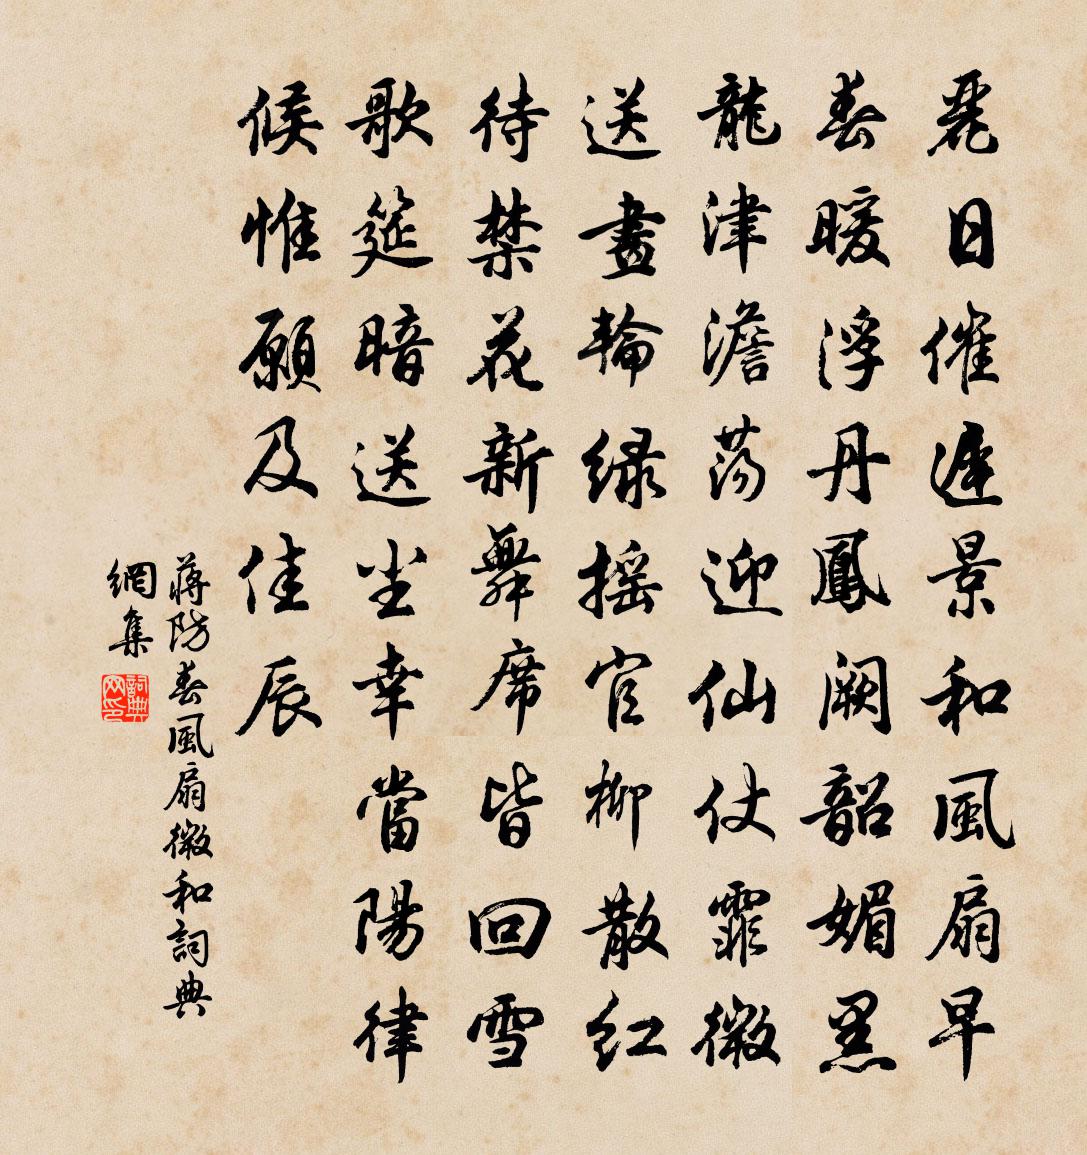 麗日催遲景和風扇早
春暖浮丹鳳闕韶媚黑
龍津澹蕩迎仙仗霏微
送晝輪綠搖官柳散紅
待禁花新舞席皆回雪
歌筵暗送尘幸當陽律
候惟願及佳辰
蔣防春風扇微和詞典
網集
詞典
网印